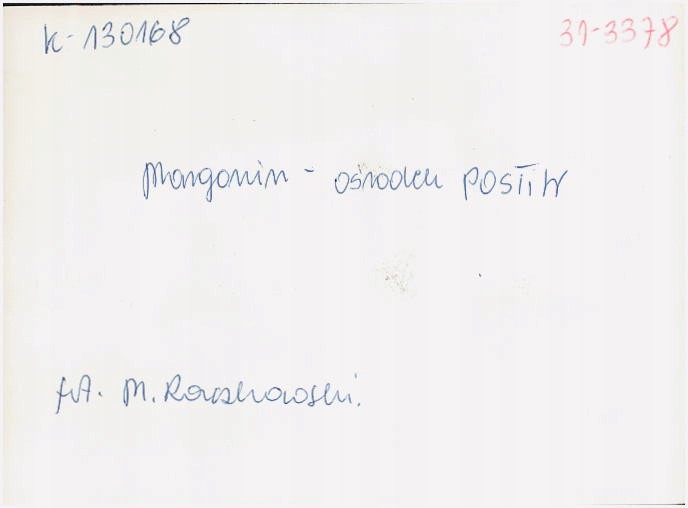 K-130168
31-3378
Margonin - ośrodek POSTiW
fot. M. Raczkowski.